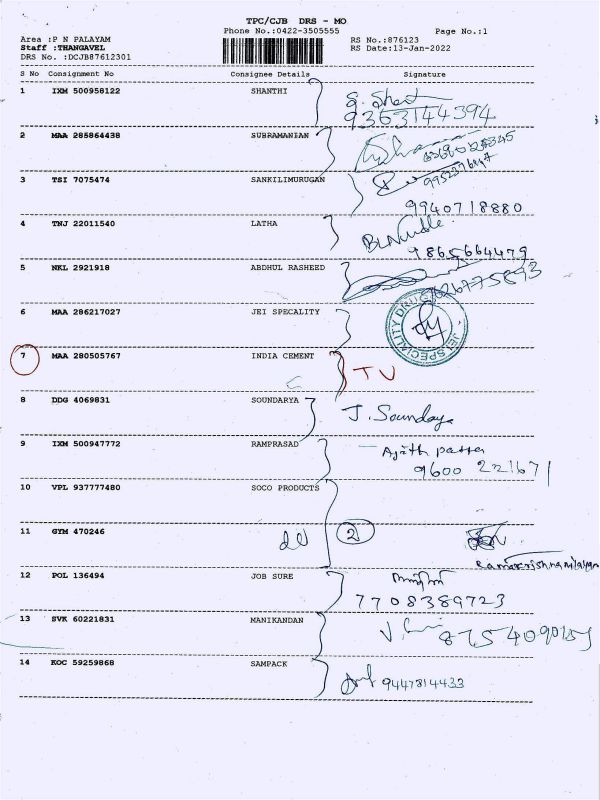 TPC/CJB DRS - MO
Phone No.:0422-3505555
Page No.:1
Area :P N PALAYAM
RS No.:876123
Staff :THANGAVEL
RS Date:13-Jan-2022
DRS No. :DCJB87612301
S No Consignment No Consignee Details Signature
1 IXM 500958122 SHANTHI
9363144394
2 MAA 285864438 SUBRAMANIAN
3 TSI 7075474 SANKILIMURUGAN
9940718880
4 TNJ 22011540 LATHA
9865664479
5 NKL 2921918 ABDHUL RASHEED
6 MAA 286217027 JEI SPECALITY
JEI SPECIALITY DRUG
7 MAA 280505767 INDIA CEMENT TV
8 DDG 4069831 SOUNDARYA J. Soundarya
9 IXM 500947772 RAMPRASAD
9600 221671
10 VPL 937777480 SOCO PRODUCTS
11 GYM 470246 2
12 POL 136494 JOB SURE
7708389723
13 SVK 60221831 MANIKANDAN
14 KOC 59259868 SAMPACK
9447814433